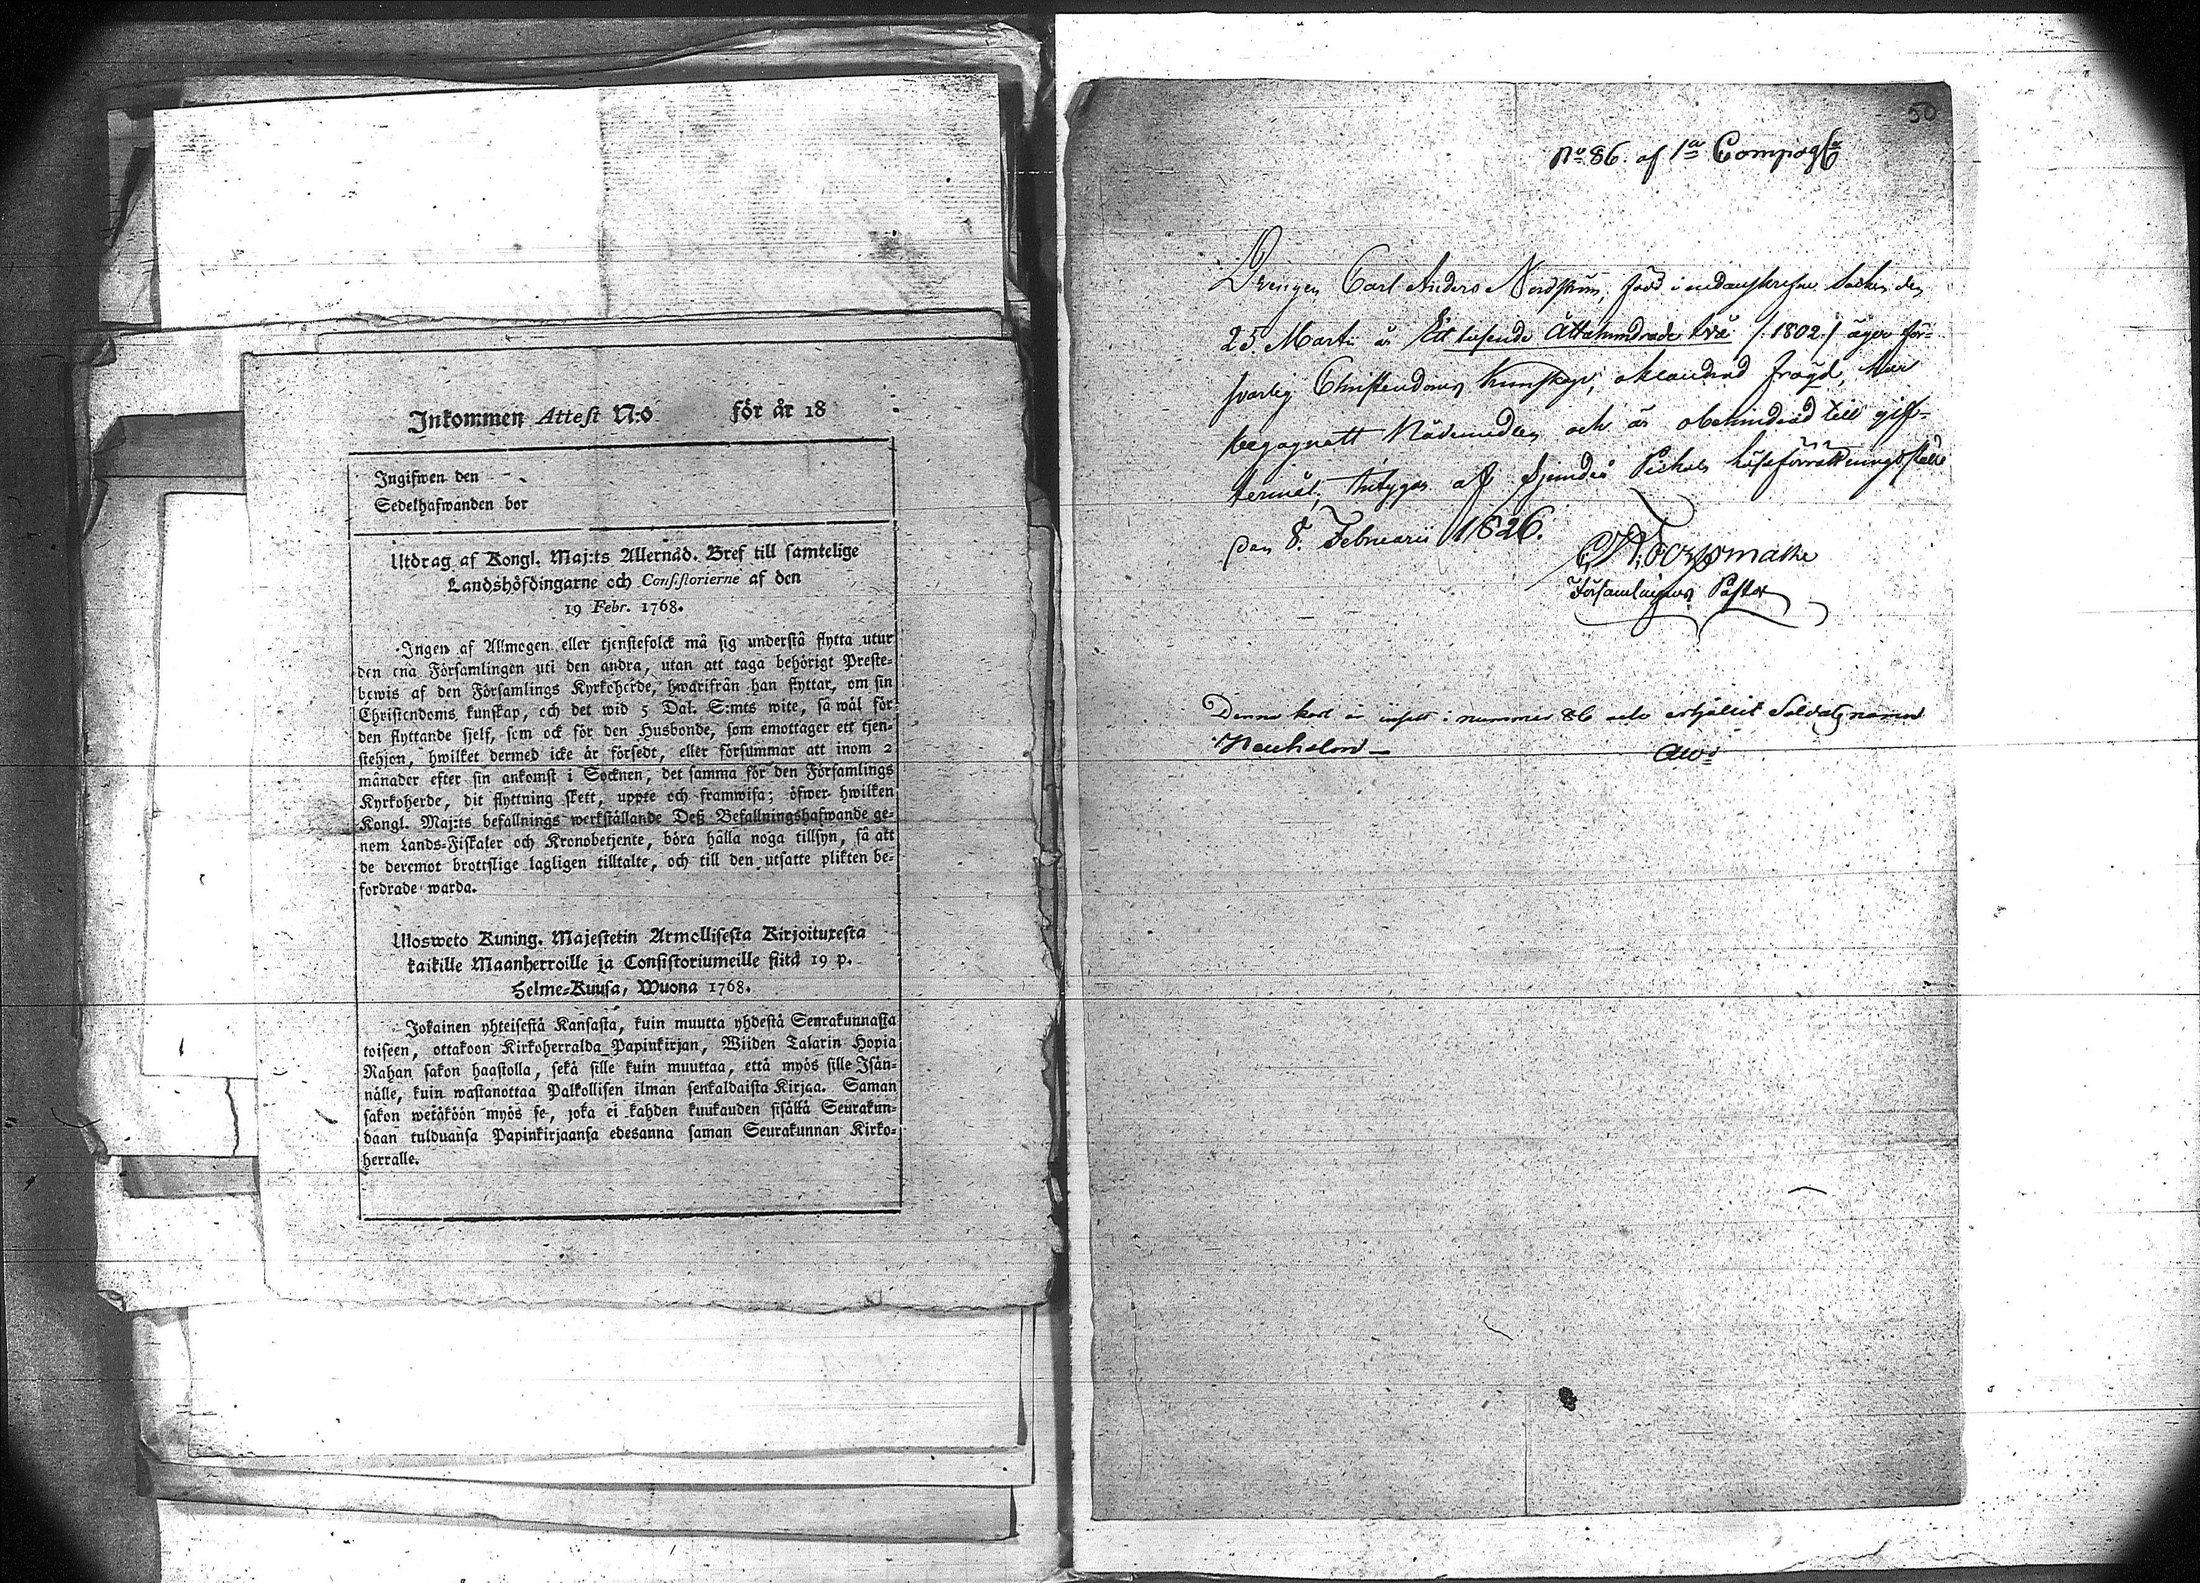 Inkommen Attest N:o för år 18
Ingifwen den
Sedelhafwanden bor
Utdrag af Kongl. Maj:ts Allernåd. Bref till samtelige
Landshöfdingarne och Consistorierne af den
19 Febr. 1768.
Ingen af Allmogen eller tjenstefolck må sig understå flytta utur
den ena Församlingen uti den andra, utan att taga behörigt Preste-
bewis af den Församlings Kyrkoherde, hwarifrån han flyttar, om sin
Christendoms kunskap, och det wid 5 Dal. S:mts wite, så wäl för
den flyttande sjelf, som ock för den Husbonde, som emottager ett tjen-
stehjon, hwilket dermed icke är försedt, eller försummar att inom 2
månader efter sin ankomst i Socknen, det samma för den Församlings
Kyrkoherde, dit flyttning skett, uppte och framwisa; öfwer hwilken
Kongl. Maj:ts befallnings werkställande Deß Befallningshafwande ge-
nem Lands-Fiskaler och Kronobetjente, böra hålla noga tillsyn, så att
de deremot brottslige lagligen tilltalte, och till den utsatte plikten be-
fordrade warda.
Ulosweto Kuning. Majestetin Armollisesta Kirjoituxesta
kaikille Maanherroille ja Consistoriumeille siitä 19 p.
Helme-Kuusa, Wuona 1768.
Jokainen yhteisestä Kansasta, kuin muutta yhdestä Seurakunnasta
toiseen, ottakoon Kirkoherralda Papinkirjan, Wiiden Talarin Hopia
Rahan sakon haastolla, sekä sille kuin muuttaa, että myös sille Isän-
nälle, kuin wastanottaa Palkollisen ilman senkaldaista Kirjaa. Saman
sakon wetäköön myös se, joka ei kahden kuukauden sisällä Seurakun-
daan tulduansa Papinkirjaansa edesanna saman Seurakunnan Kirko-
herralle.
50
No 86. af 1a Compag
Drengen Carl Anders Nordström, född i nedanskrefne Socken den
25 Martii år Ett tusende Åttahundrade två /:1802:/ äger för-
svarlig Christendoms kunskap, oklandrad frägd, har
begagnatt Nådemedlen och är obehindrad till gif-
termål, intygar af Sjundeå
den 8. Februarii 1826.
Församlingens Pastor
Denne karl är insatt i nummer 86 och erhållit Soldatznamn